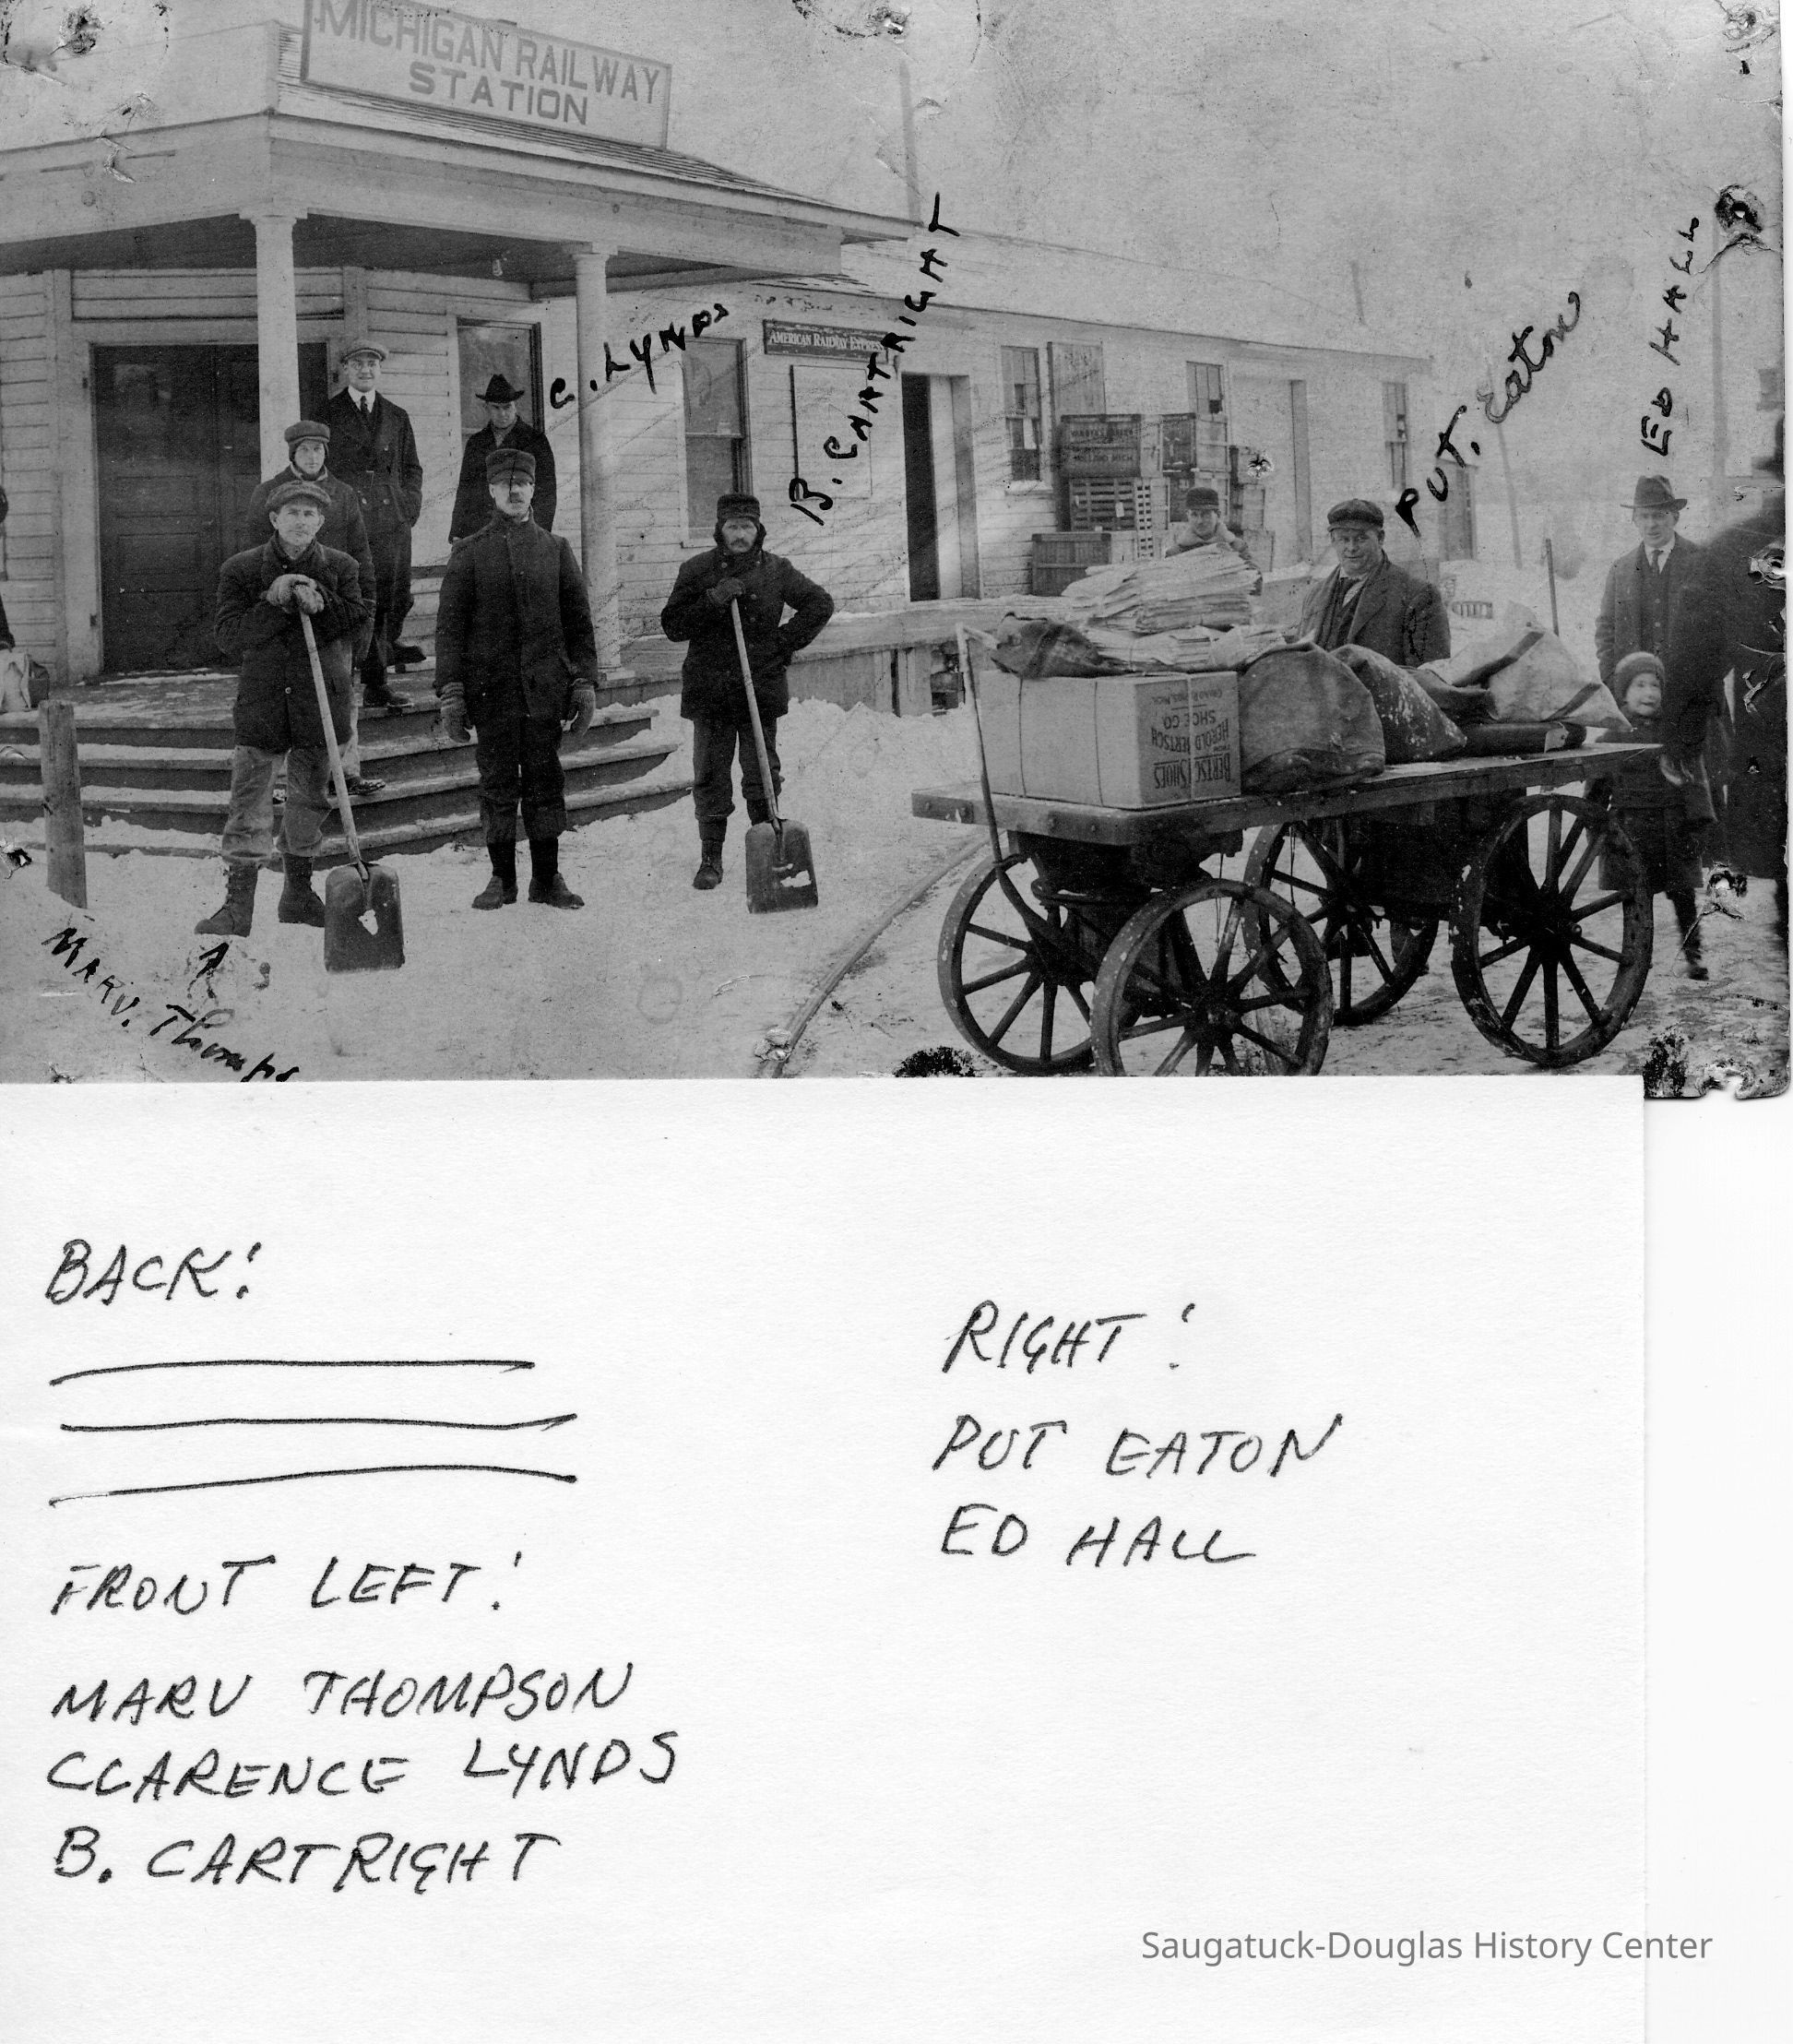 MICHIGAN RAILWAY
STATION
C. LYNDS
AMERICAN RAILWAY EXPRESS
B. CARTRIGHT
PUT. Eaton
ED HALL
HEROLD BERTSCH
SHOE CO.
BERTSCH SHOES
MARV. Thomps
BACK:
FRONT LEFT:
MARV THOMPSON
CLARENCE LYNDS
B. CARTRIGHT
RIGHT:
PUT EATON
ED HALL
Saugatuck-Douglas History Center